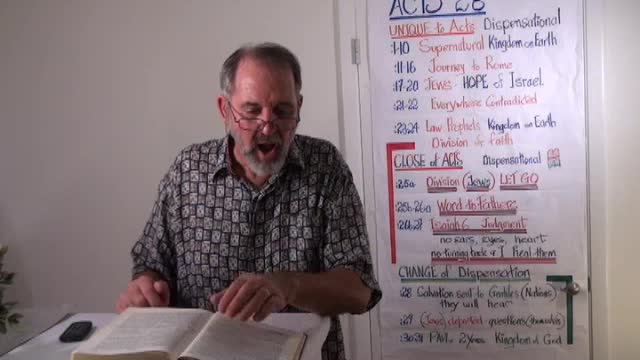 ACTS 28
UNIQUE to Acts Dispensational
:1-10 Supernatural Kingdom on Earth
:11-16 Journey to Rome
:17-20 Jews - HOPE of Israel.
:21-22 Everywhere Contradicted
:23-24 Law Prophets Kingdom on Earth
Division of faith
CLOSE of ACTS Dispensational
:25a Division (Jews) LET GO
:25b-26a Word to Fathers
:26b-27 Isaiah 6 Judgment
no ears, eyes, heart
no turning back & I heal them
CHANGE of Dispensation
:28 Salvation sent to Gentiles (Nations)
they will hear
:29 (Jews) departed - questions (themselves)
:30-31 PAUL 2 years Kingdom of God